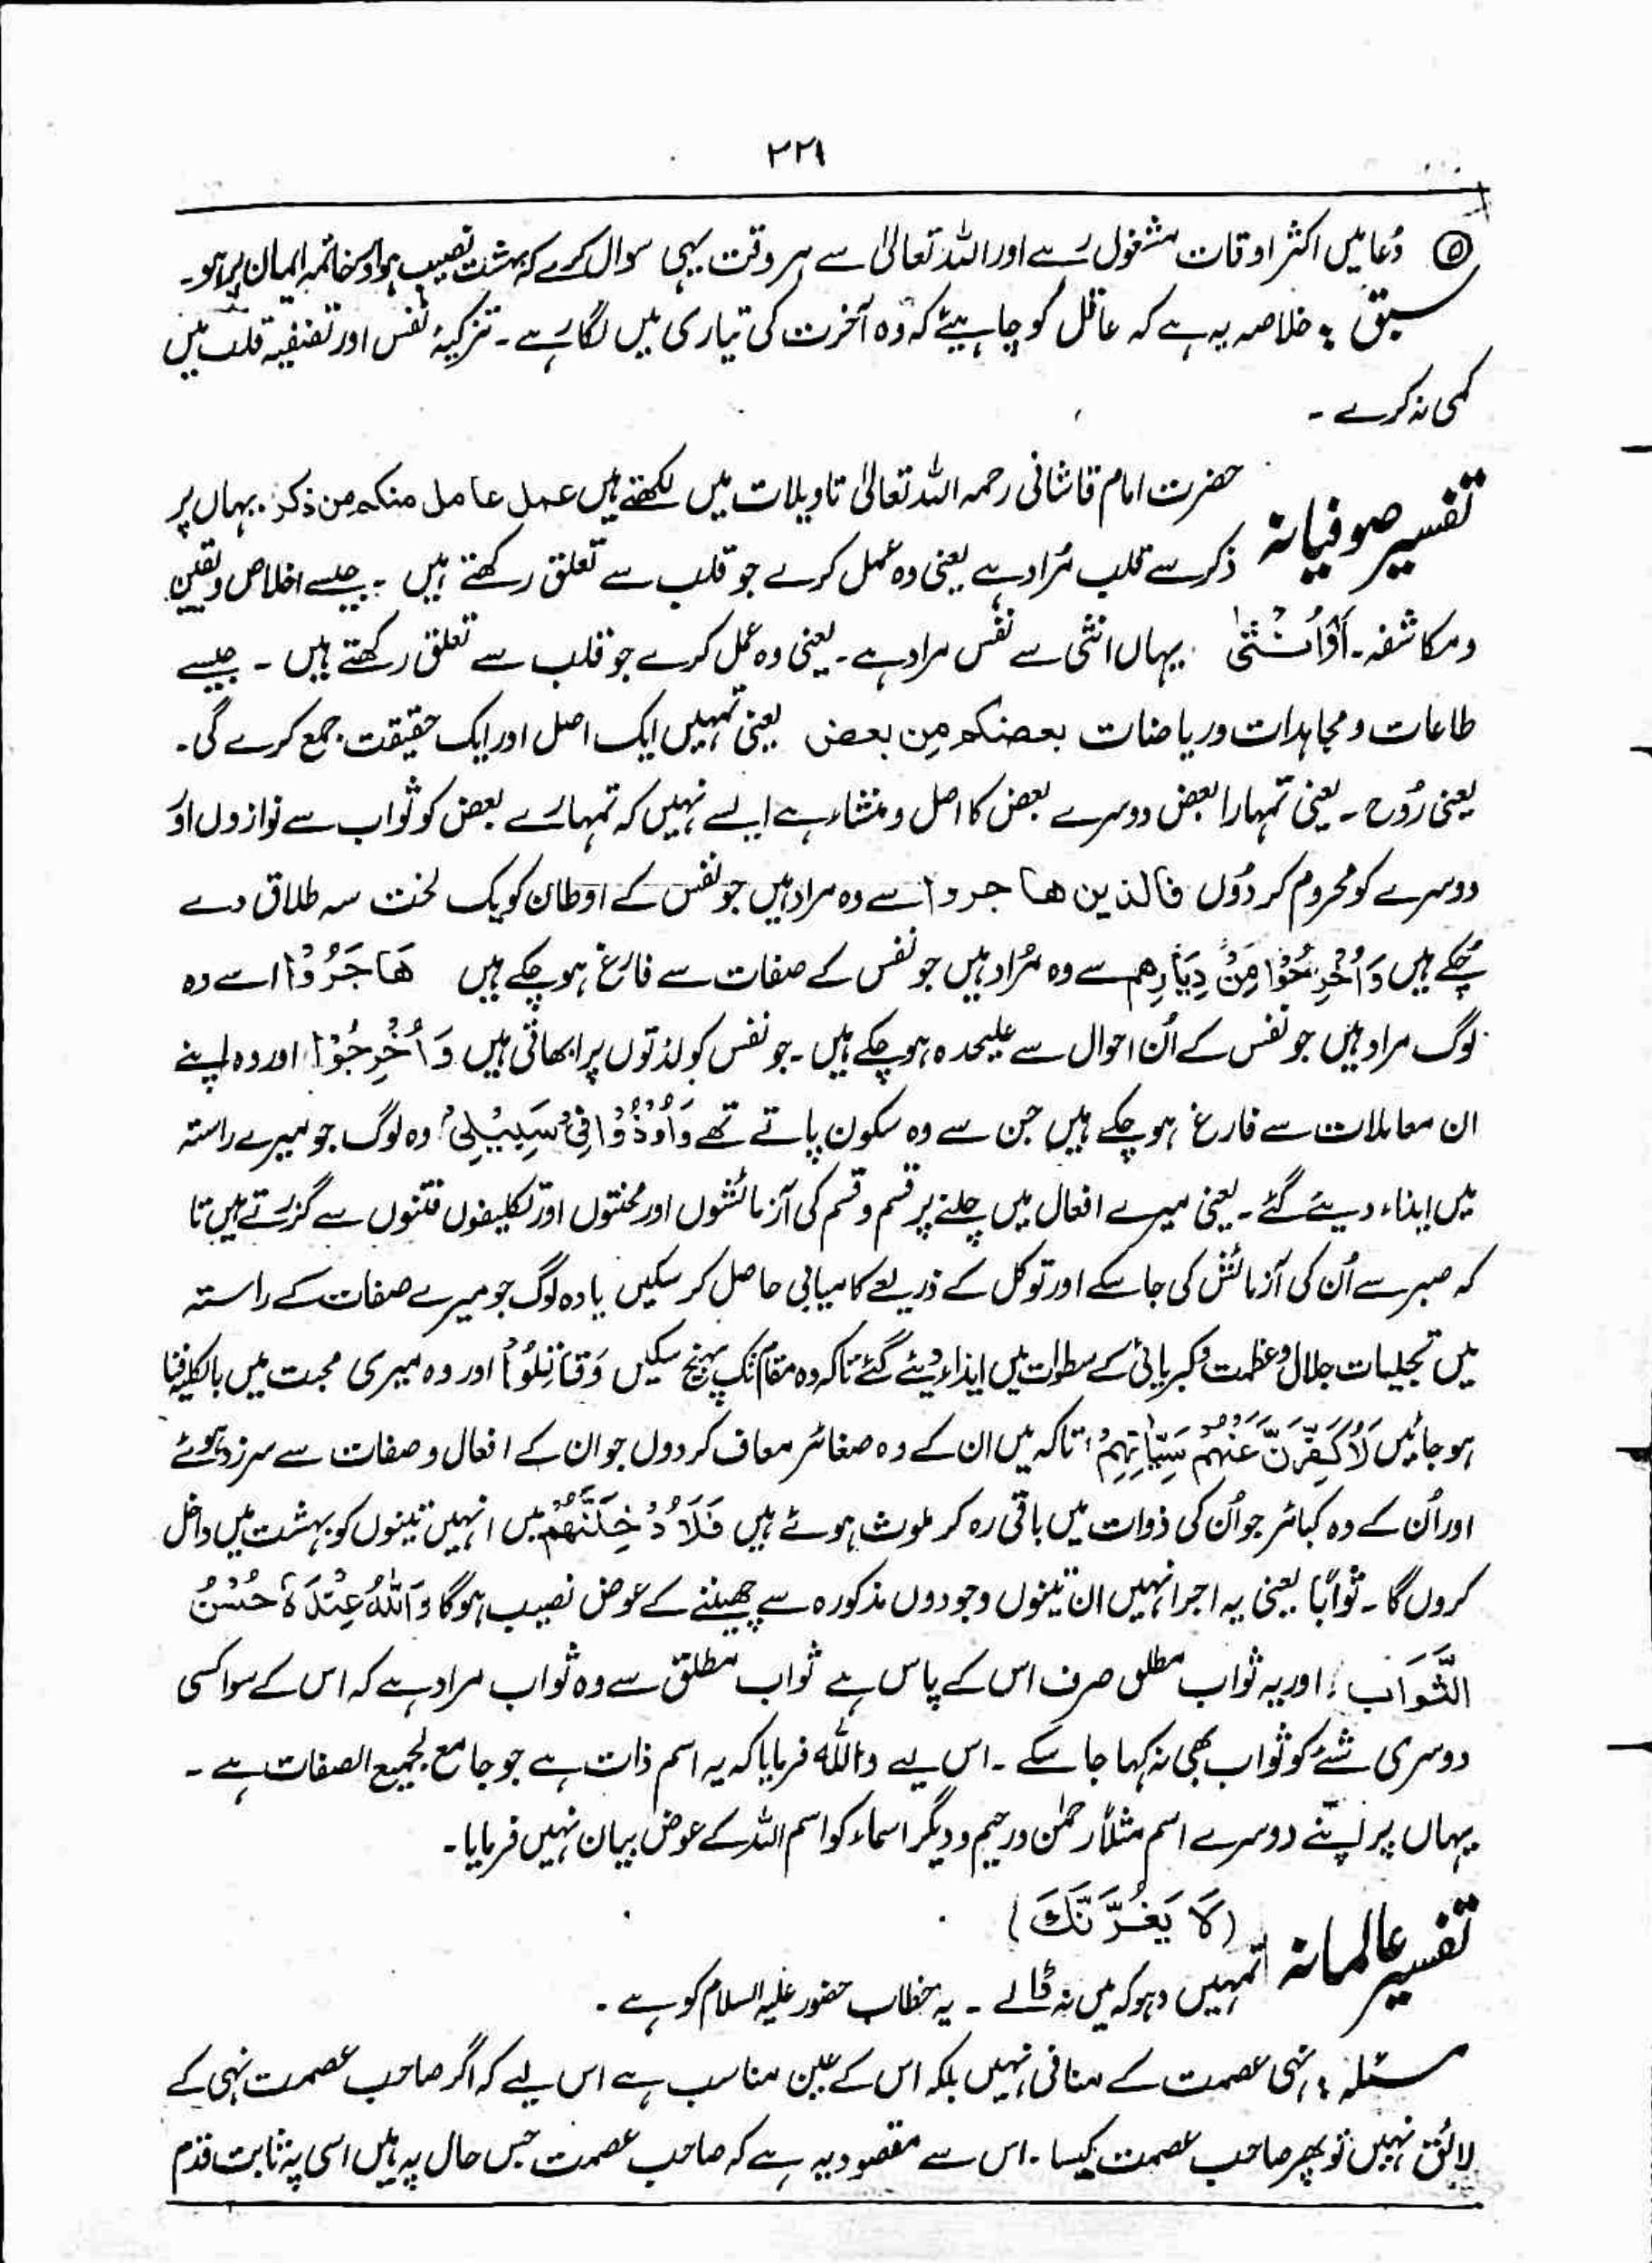 ۲۲۱
⑤ دُعا میں اکثر اوقات مشغول رہے اور اللہ تعالیٰ سے ہر وقت یہی سوال کرے کہ بہشت نصیب ہو اور خاتمہ ایمان پر ہو۔
سبق : خلاصہ یہ ہے کہ عاقل کو چاہیئے کہ وہ آخرت کی تیاری میں لگا رہے ۔ تزکیۂ نفس اور تصفیہ قلب میں
کمی نہ کرے ۔
تفسیر صوفیانہ حضرت امام قاشانی رحمہ اللہ تعالیٰ تاویلات میں لکھتے ہیں عمل عامل منکم من ذکر ۔ یہاں پر
ذکر سے قلب مُراد ہے یعنی وہ عمل کرے جو قلب سے تعلق رکھتے ہیں ۔ جیسے اخلاص و یقین
و مکاشفہ ۔ اَوْ اُنْثٰی یہاں انثی سے نفس مراد ہے ۔ یعنی وہ عمل کرے جو قلب سے تعلق رکھتے ہیں ۔ جیسے
طاعات و مجاہدات و ریاضات بعضکم من بعض یعنی تمہیں ایک اصل اور ایک حقیقت جمع کرے گی ۔
یعنی رُوح ۔ یعنی تمہارا بعض دوسرے بعض کا اصل و منشاء ہے ایسے نہیں کہ تمہارے بعض کو ثواب سے نوازوں اور
دوسرے کو محروم کر دُوں فالذین ھاجروا سے وہ مراد ہیں جو نفس کے اوطان کو یک لخت سہ طلاق دے
چُکے ہیں وَاُخْرِجُوْا مِنْ دِیَارِھِم سے وہ مُراد ہیں جو نفس کے صفات سے فارغ ہو چکے ہیں ھَاجَرُوْا سے وہ
لوگ مراد ہیں جو نفس کے اُن احوال سے علیحدہ ہو چکے ہیں ۔ جو نفس کو لذتوں پر ابھاتی ہیں وَاُخْرِجُوْا اور وہ اپنے
ان معاملات سے فارغ ہو چکے ہیں جن سے وہ سکون پاتے تھے وَاُوْذُوْا فِیْ سَبِیْلِیْ وہ لوگ جو میرے راستہ
میں ایذاء دیئے گئے ۔ یعنی میرے افعال میں چلنے پر قسم و قسم کی آزمائشوں اور محنتوں اور تکلیفوں فتنوں سے گزرتے ہیں تا
کہ صبر سے اُن کی آزمائش کی جا سکے اور توکل کے ذریعے کامیابی حاصل کر سکیں یا وہ لوگ جو میرے صفات کے راستہ
میں تجلیات جلال و عظمت و کبریائی کے سطوات میں ایذاء دیئے گئے تاکہ وہ مقام تک پہنچ سکیں وَقَاتَلُوْا اور وہ میری محبت میں بالکلیہ فنا
ہو جائیں لَاُکَفِّرَنَّ عَنْہُمْ سَیِّاٰتِہِمْ تاکہ میں ان کے وہ صغائر معاف کر دوں جو ان کے افعال و صفات سے سرزد ہوئے
اور اُن کے وہ کبائر جو اُن کی ذوات میں باقی رہ کر ملوث ہوئے ہیں فَلَاُدْخِلَنَّھُمْ میں انہیں تینوں کو بہشت میں داخل
کروں گا ۔ ثَوَابًا یعنی یہ اجر انہیں ان تینوں وجودوں مذکورہ سے چھیننے کے عوض نصیب ہوگا وَاللّٰہُ عِنْدَہٗ حُسْنُ
الثَّوَاب اور یہ ثواب مطلق صرف اس کے پاس ہے ثواب مطلق سے وہ ثواب مراد ہے کہ اس کے سوا کسی
دوسری شئے کو ثواب بھی نہ کہا جا سکے ۔ اس لیے واللّٰہ فرمایا کہ یہ اسم ذات ہے جو جامع لجمیع الصفات ہے ۔
یہاں پر اپنے دوسرے اسم مثلاً رحمٰن و رحیم و دیگر اسماء کو اسم اللہ کے عوض بیان نہیں فرمایا ۔
تفسیر عالمانہ (لَا یَغُرَّنَّکَ)
تمہیں دہوکہ میں نہ ڈالے ۔ یہ خطاب حضور علیہ السلام کو ہے ۔
مسئلہ : نہی عصمت کے منافی نہیں بلکہ اس کے عین مناسب ہے اس لیے کہ اگر صاحب عصمت نہی کے
لائق نہیں تو پھر صاحب عصمت کیسا ۔ اس سے مقصود یہ ہے کہ صاحب عصمت جس حال پہ ہیں اسی پہ ثابت قدم